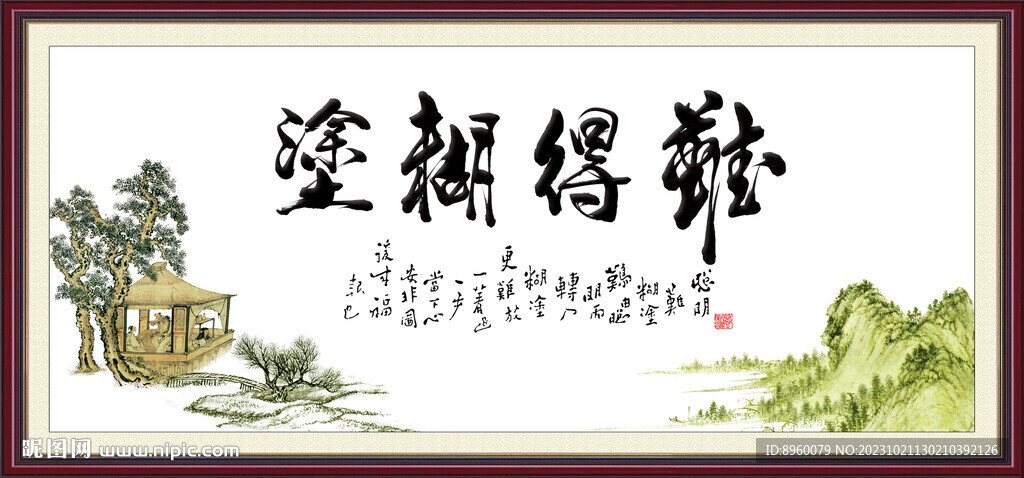 難得糊塗
聰明
難
糊塗
難由聰
明而
轉入
糊塗
更難放
一著退
一步
當下心
安非圖
後來福
報也
昵图网 www.nipic.com
ID:8960079 NO:20231021130210392126